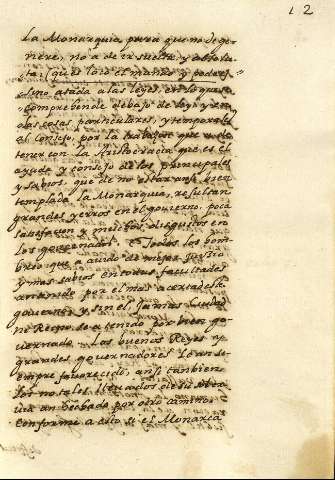 12
La Monarquia para que no dege
nere, no a de ir suelta, y absolu
ta (que es loco el mando y poder)
sino atada a las leyes, en lo que se
comprehende debajo de ley, y en
las cosas particulares, y temporales
al Consejo, por la trabaçon que a de
tener con la Aristocracia que es el
ayuda y consejo de los principales
y sabios, que de no estar ansi bien
templada la Monarquia, resultan
grandes yerros en el govierno, poca
satisfacion y muchos disgustos en
los governados. Todos los hom
bres que a avido de mejor juyzio
y mas sabios en todas facultades
an tenido por el mas acertado este
govierno y sin el jamas Ciudad
ni Reyno se a tenido por bien go
vernado. Los buenos Reyes y
grandes governadores le an si
empre favorecido, ansi tanbien
los no tales llevados de su
an hechado por otro camino.
Conforme a esto si el Monarca